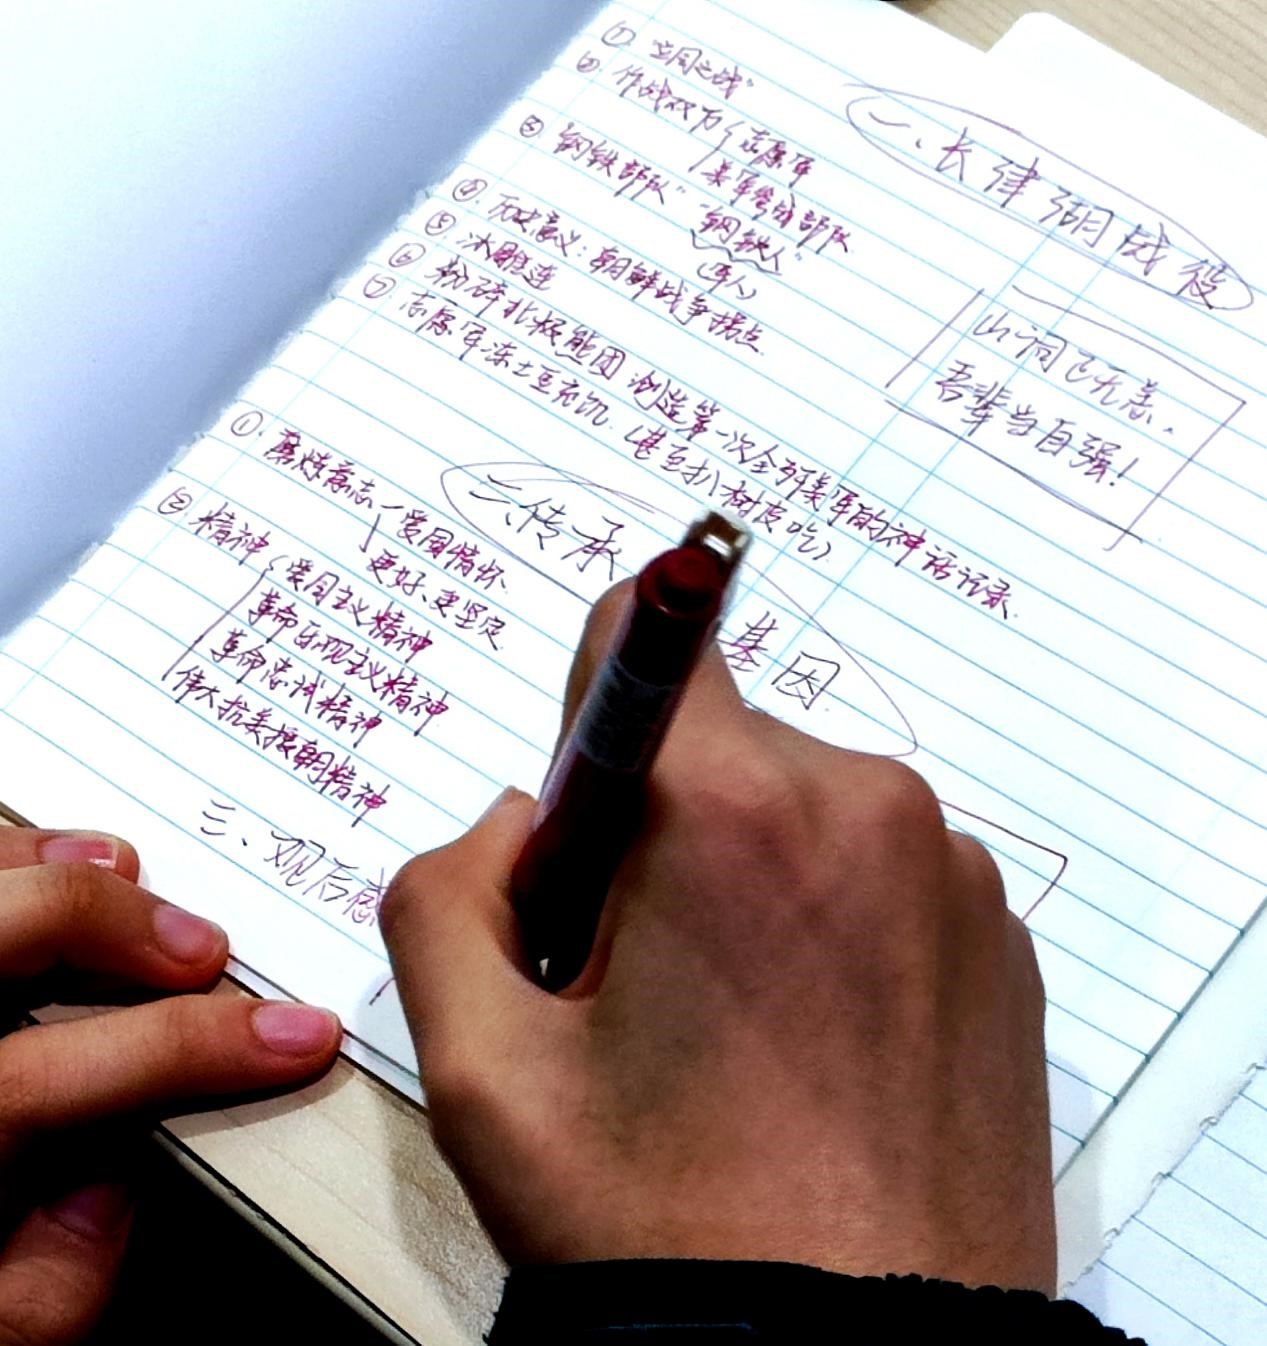 一、长津湖战役
① 立国之战"
② 作战双方 志愿军
美军等多部队
③ "钢铁部队" "钢铁人"
(军人)
④ 历史意义：朝鲜战争拐点
⑤ 冰雕连
⑥ 粉碎北极熊团 创造第一次全歼美军的神话记录.
⑦ 志愿军冻土豆充饥.(甚至扒树皮吃)
山河已无恙.
吾辈当自强!
二、传承
基因
① 磨炼奋志 爱国情怀
更好、更坚定
② 精神 爱国主义精神
革命乐观主义精神
革命忠诚精神
伟大抗美援朝精神
三、观后感